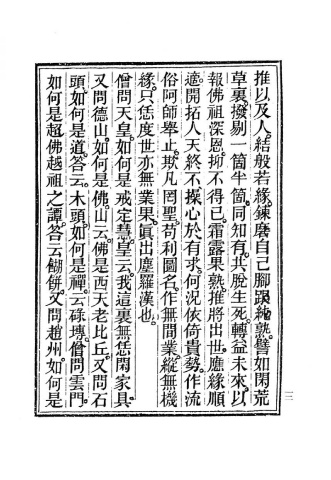 推以及人。結般若緣。鍊磨自己腳跟純熟。譬如閑荒
草裏。撥剔一箇半箇。同知有。共脫生死。轉益未來。以
報佛祖深恩。抑不得已。霜露果熟。推將出世。應緣順
適。開拓人天。終不操心於有求。何況依倚貴勢。作流
俗阿師。舉止欺凡罔聖。苟利圖名。作無間業。縱無機
緣。只恁度世。亦無業果。真出塵羅漢也。
僧問天皇。如何是戒定慧。皇云。我這裏無恁閑家具。
又問德山。如何是佛。山云。佛是西天老比丘。又問石
頭。如何是道。答云。木頭。如何是禪。云碌塼。僧問雲門。
如何是超佛越祖之譚。答云餬餅。又問趙州。如何是
三